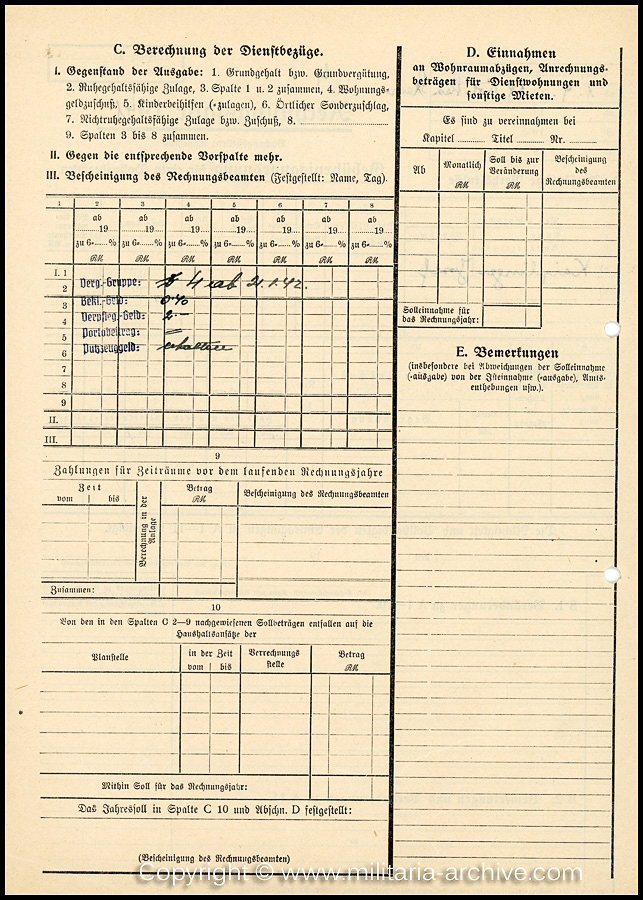 C. Berechnung der Dienstbezüge.
I. Gegenstand der Ausgabe: 1. Grundgehalt bzw. Grundvergütung,
2. Ruhegehaltsfähige Zulage, 3. Spalte 1 u. 2 zusammen, 4. Wohnungs-
geldzuschuß, 5. Kinderbeihilfen (-zulagen), 6. Örtlicher Sonderzuschlag,
7. Nichtruhegehaltsfähige Zulage bzw. Zuschuß, 8.
9. Spalten 3 bis 8 zusammen.
II. Gegen die entsprechende Vorspalte mehr.
III. Bescheinigung des Rechnungsbeamten (Festgestellt: Name, Tag).
1 2 3 4 5 6 7 8
ab ab ab ab ab ab ab
19 19 19 19 19 19 19
zu 6 % zu 6 % zu 6 % zu 6 % zu 6 % zu 6 % zu 6 %
RM RM RM RM RM RM RM
I. 1
2 Verg.-Gruppe: 4 ab 21.1.42.
3 Bekl.-Geld: 0.40
4 Verpfleg.-Geld: 2.-
5 Portobeitrag: =
6 Putzzeuggeld: erhalten
7
8
9
II.
III.
9
Zahlungen für Zeiträume vor dem laufenden Rechnungsjahre
Zeit
vom bis
Berechnung in der Anlage
Betrag
RM
Bescheinigung des Rechnungsbeamten
Zusammen:
10
Von den in den Spalten C 2—9 nachgewiesenen Sollbeträgen entfallen auf die
Haushaltsansätze der
Planstelle
in der Zeit
vom bis
Verrechnungs
stelle
Betrag
RM
Mithin Soll für das Rechnungsjahr:
Das Jahressoll in Spalte C 10 und Abschn. D festgestellt:
(Bescheinigung des Rechnungsbeamten)
D. Einnahmen
an Wohnraumabzügen, Anrechnungs-
beträgen für Dienstwohnungen und
sonstige Mieten.
Es sind zu vereinnahmen bei
Kapitel Titel Nr.
Ab
Monatlich
RM
Soll bis zur
Veränderung
RM
Bescheinigung
des
Rechnungsbeamten
Solleinnahme für
das Rechnungsjahr:
E. Bemerkungen
(insbesondere bei Abweichungen der Solleinnahme
(-ausgabe) von der Isteinnahme (-ausgabe), Amts-
enthebungen usw.).
Copyright © www.militaria-archive.com